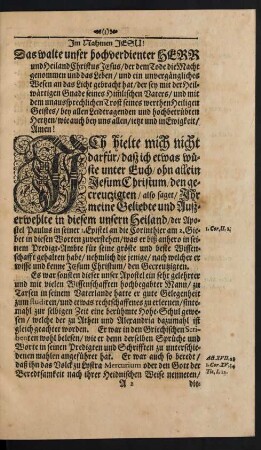 Im Nahmen JESU!
Das walte unser hochverdienter HERR
und Heiland Christus Jesus / der dem Tode die Macht
genommen und das Leben / und ein unvergängliches
Wesen an das Licht gebracht hat / der sey mit der Heil-
wärtigen Gnade seines Himlischen Vaters / und mit
dem unaußsprechlichen Trost seines werthen Heiligen
Geistes / bey allen Leidtragenden und hochbetrübten
Hertzen / wie auch bey uns allen / jetzt und in Ewigkeit /
Amen!
ICh hielte mich nicht
darfür / daß ich etwas wü-
ste unter Euch / ohn allein
Jesum Christum / den ge-
creutzigten / also saget / Ihr
meine Geliebte und Auß-
erwehlte in diesem unsern Heiland / der Apo-
stel Paulus in seiner 1. Epistel an die Corinthier am 2. Gie-
bet in diesen Worten zuverstehen / was er bißanhero in sei-
nem Predigt-Ambte für seine gröste und beste Wissen-
schafft gehalten habe / nehmlich die jenige / nach welcher er
wisse und kenne Jesum Christum / den Gecreutzigten.
Es war sonsten dieser unser Apostel ein sehr gelehrter
und mit vielen Wissenschafften hochbegabter Mann / zu
Tarsen in seinem Vaterlande hatte er gute Gelegenheit
zum studieren, und etwas rechtschaffenes zu erlernen / sinte-
mahl zur selbigen Zeit eine berühmte Hohe-Schul gewe-
sen / welche der zu Athen und Alexandria dazumahl ist
gleich geachtet worden. Er war in den Griechischen Scri-
benten wohl belesen / wie er denn derselben Sprüche und
Worte in seinen Predigten und Schrifften zu unterschie-
denen mahlen angeführet hat. Er war auch so beredt /
daß ihn das Volck zu Lystra Mercurium oder den Gott der
Beredtsamkeit nach ihrer Heidnischen Weise nenneten /
A 2
die-
1. Cor. II. 2.